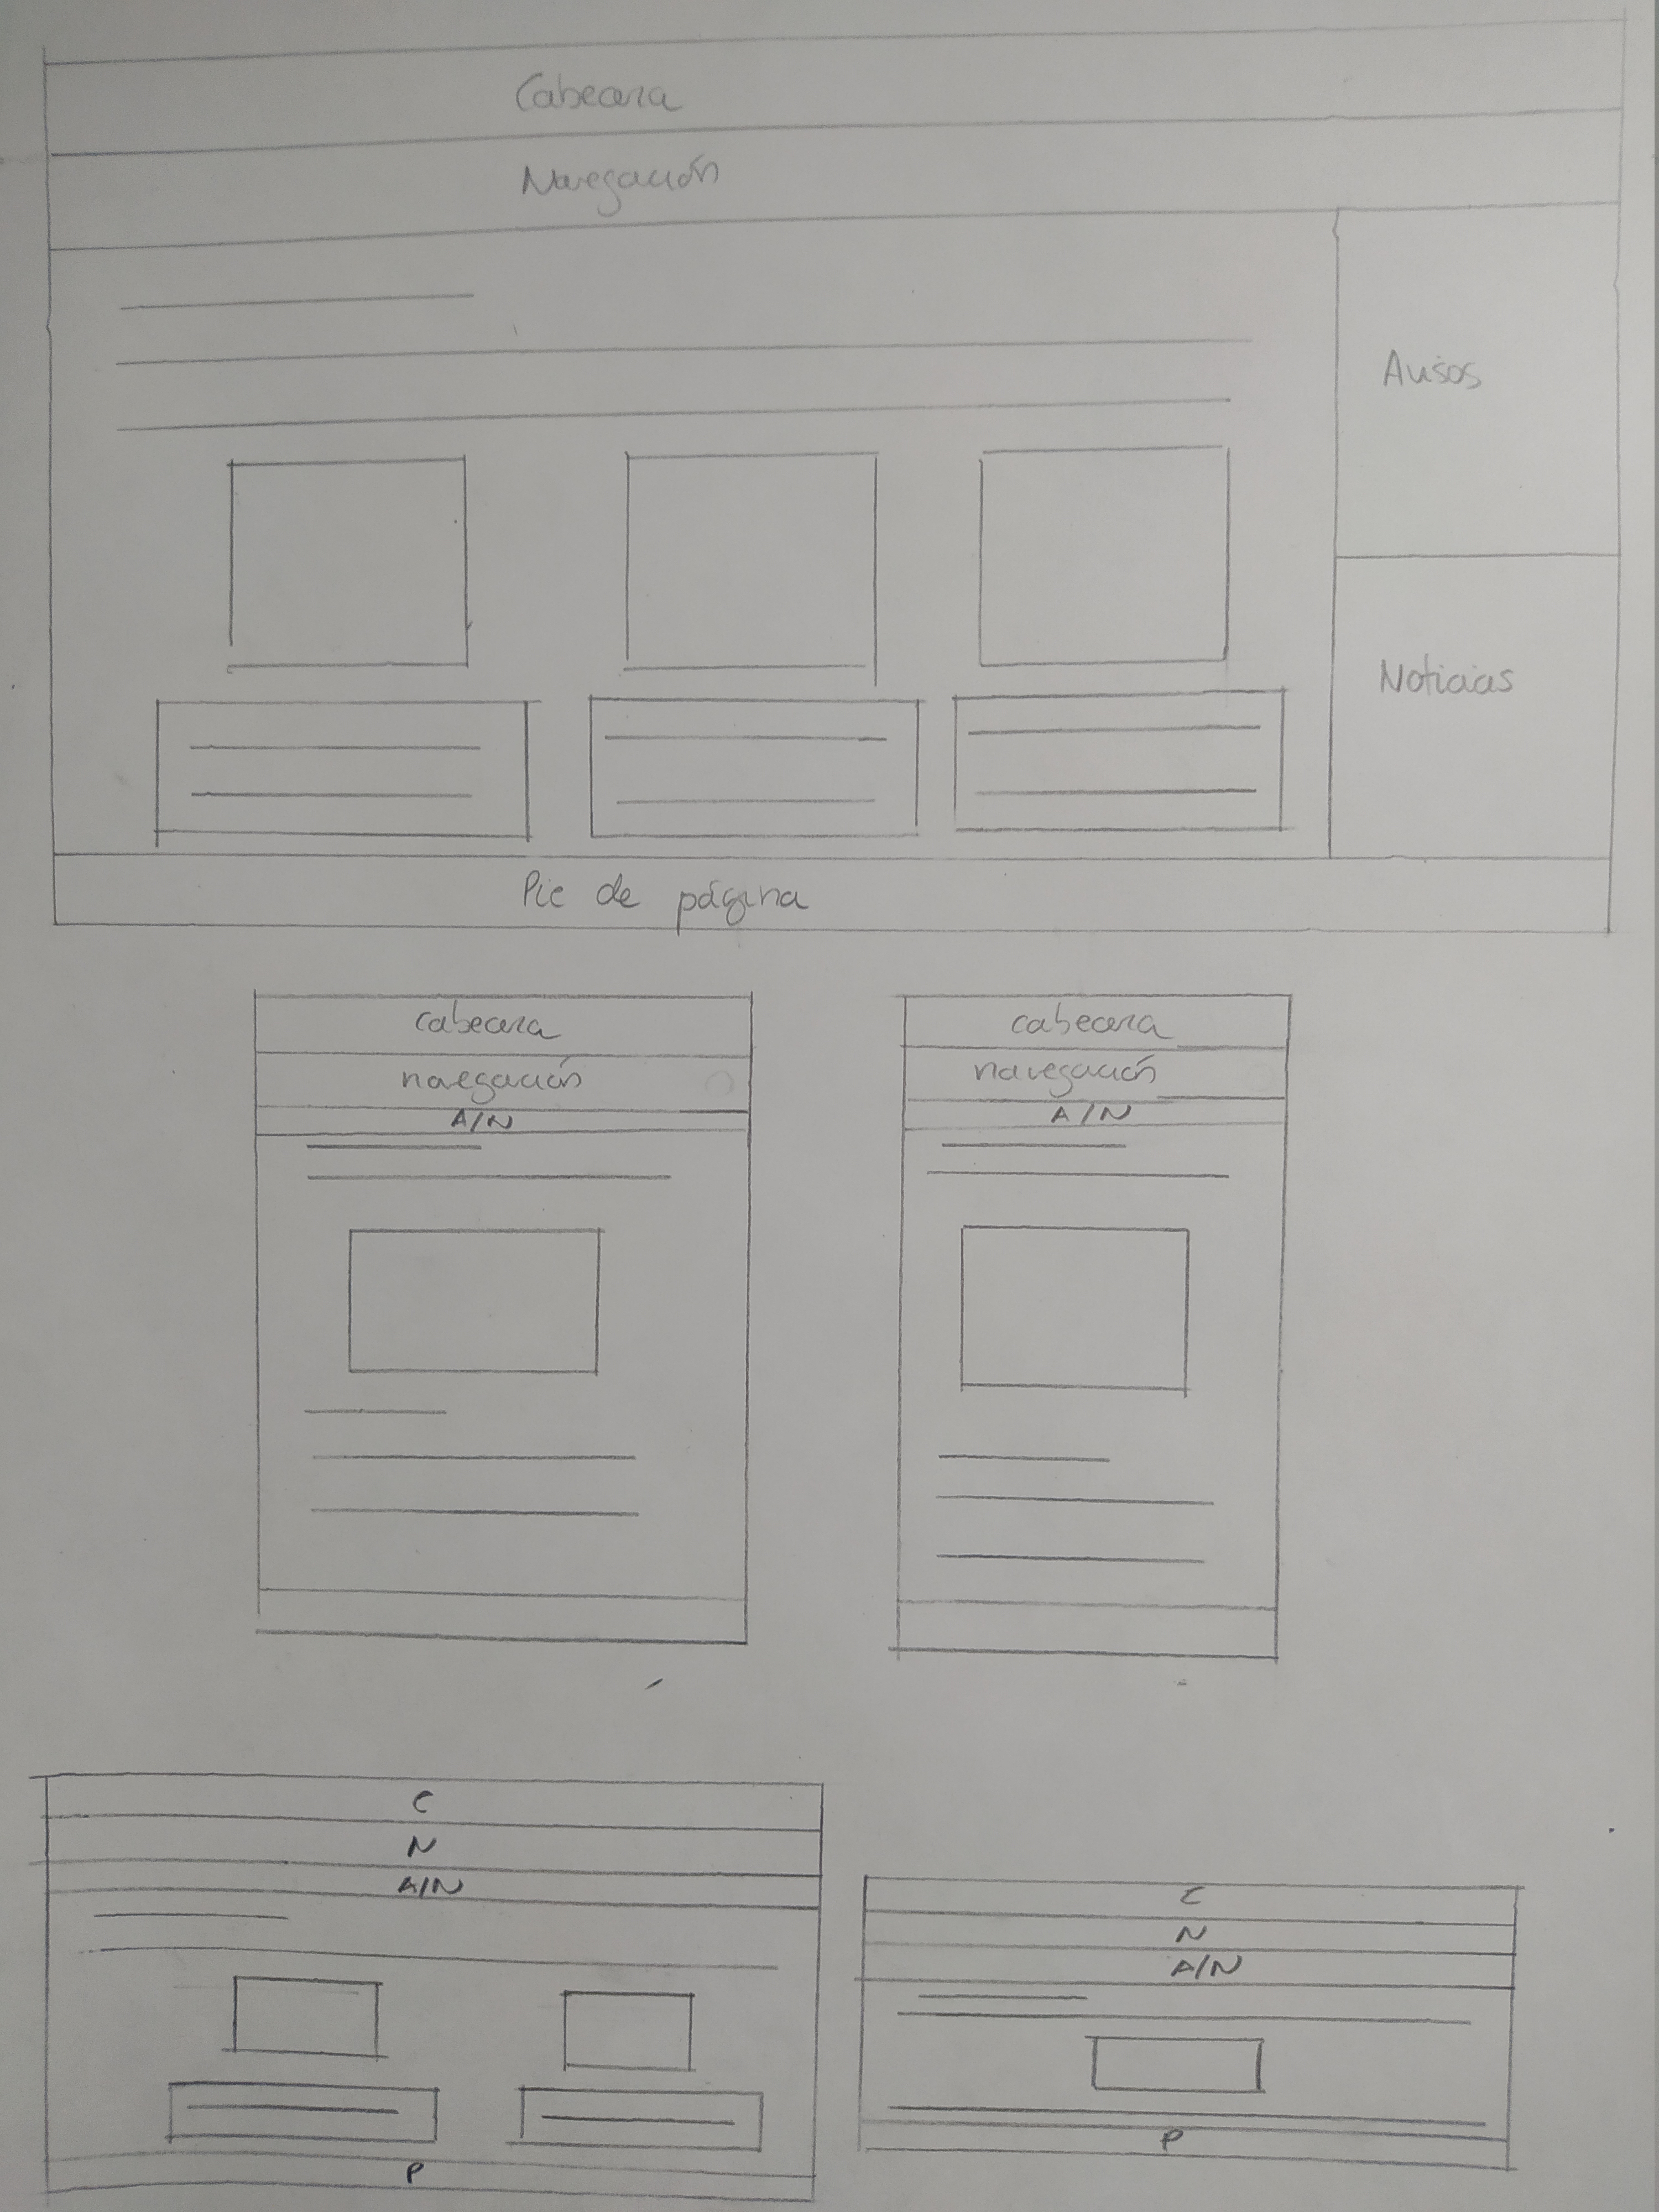 Cabecera
Navegación
Avisos
Noticias
Pie de página
cabecera
navegación
A/N
cabecera
navegación
A/N
C
N
A/N
P
C
N
A/N
P